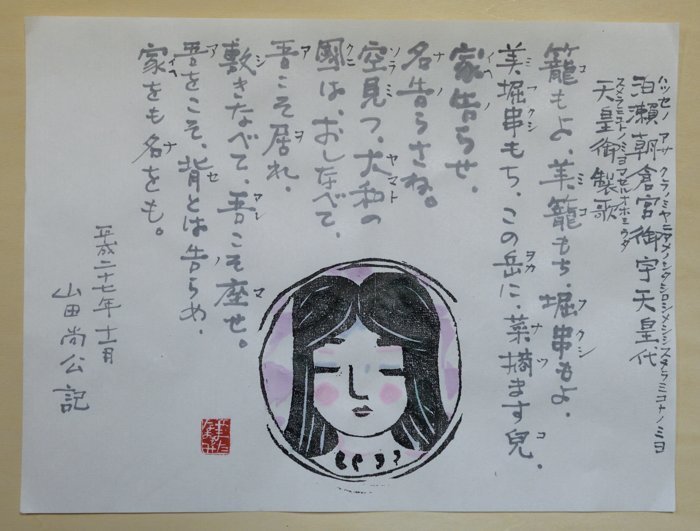 泊瀬朝倉宮御宇天皇代
天皇御製歌
籠もよ、美籠もち、堀串もよ、
美堀串もち、この岳に、菜摘ます兒、
家告らせ、
名告らさね。
空見つ、大和の
國は、おしなべて、
吾こそ居れ、
敷きなべて、吾こそ座せ。
吾をこそ、背とは告らめ、
家をも名をも。
平成二十七年十一月
山田尚公記